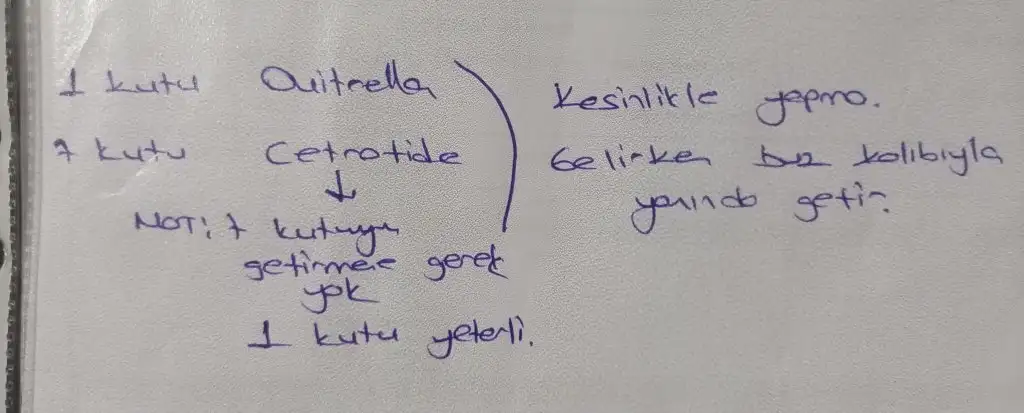 1 kutu Ouitrella
7 kutu Cetrotide
↓
NOT: 7 kutuyu
getirmene gerek
yok
1 kutu yeterli.
Kesinlikle yapma.
Gelirken buz kalıbıyla
yanında getir.